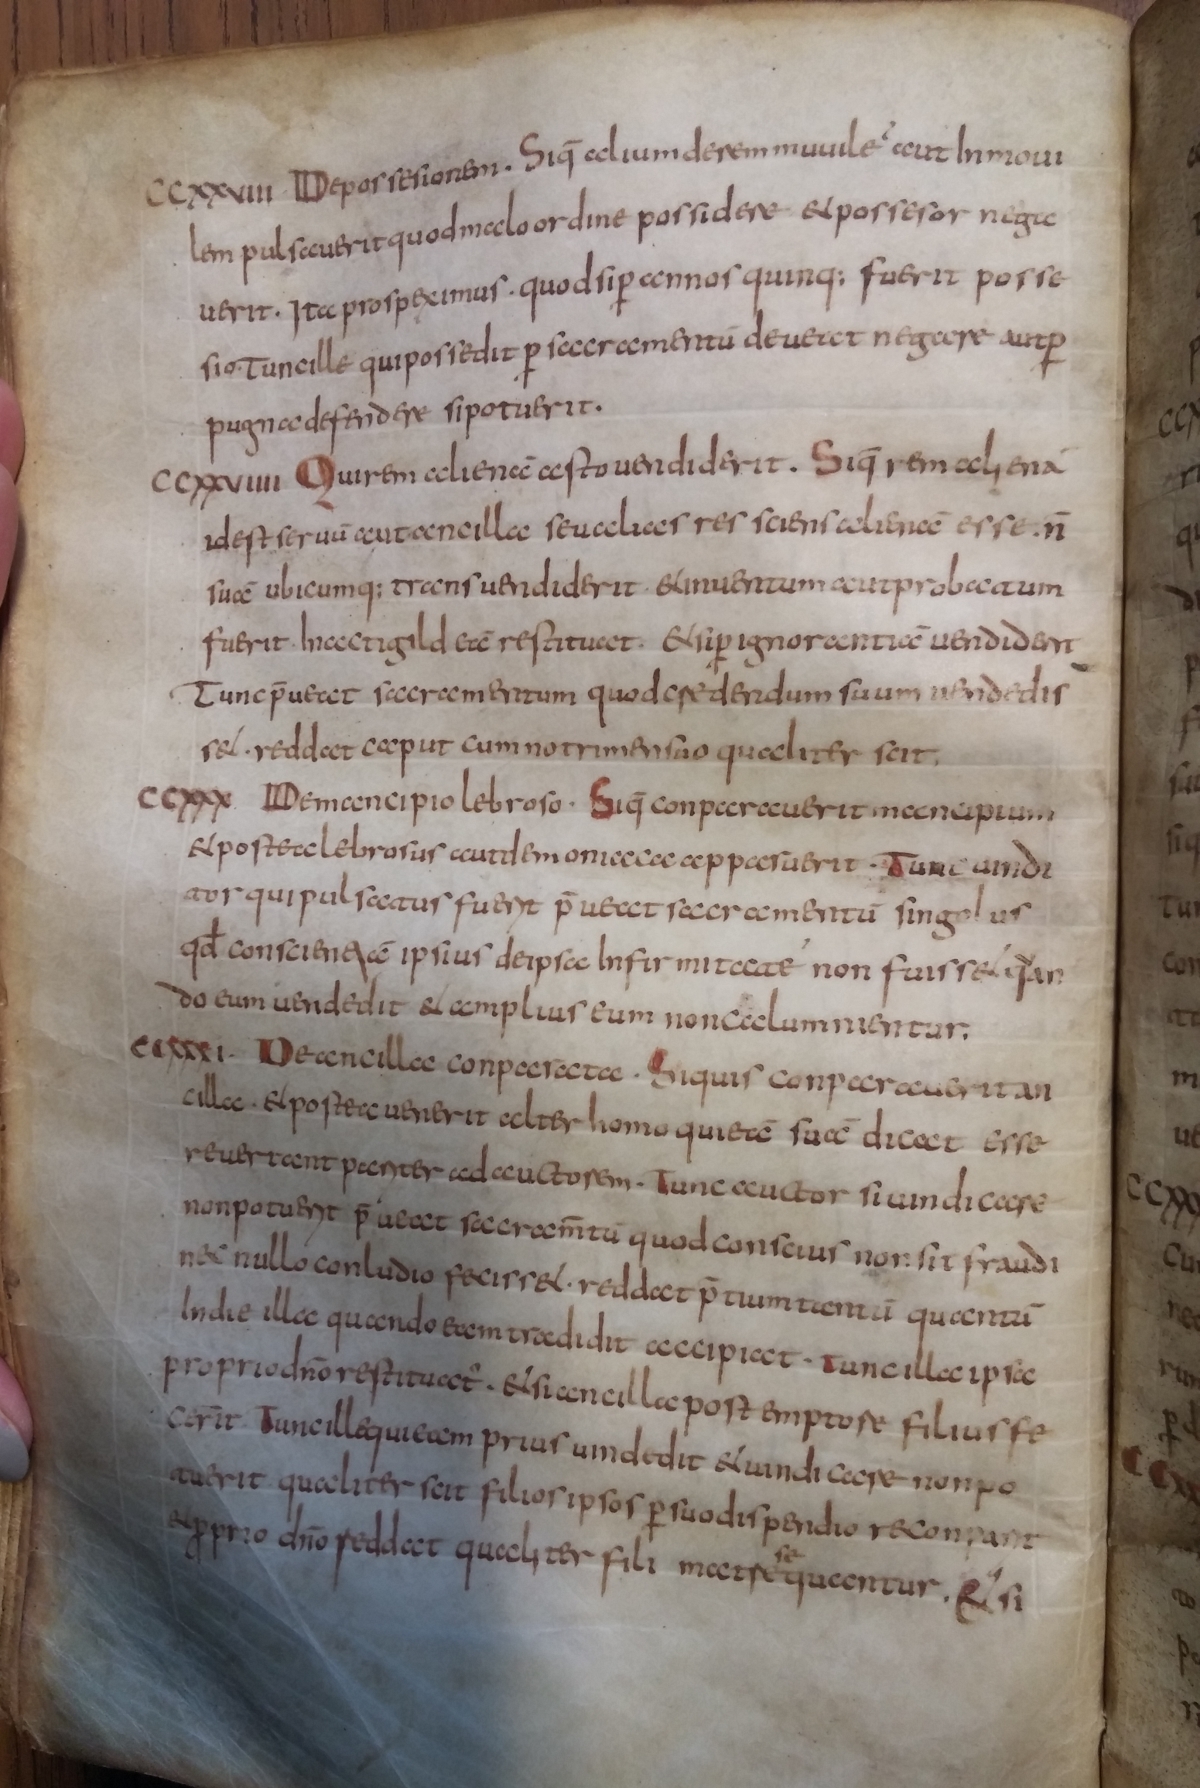 CCXXVIII Depossesionem. Siq̄ alium de rem muuile aut In moui
lem pulsauerit quod malo ordine possidere et possesor nega
uerit. Ita prospeximus. quod sip̱ annos quinq; fuerit posse
sio. Tunc ille qui possedit p̱ sacramentū deueat negare aut p̱
pugna defendere si potuerit.
CCXXVIIII Qui rem alienā asto uendiderit. Siq̄ rem alienā
id est seruū aut ancilla seu alias res sciens alienā esse. n̄
suā ubicumq; trans uendiderit et inuentum aut probatum
fuerit. In actigild eā restituat. et sip̱ ignorantiā uendiderit
Tunc p̄ueat sacramentum quod credendum suum uendedis
set. reddat caput cum notrimen suo qualiter scit.
CCXXX De mancipio lebroso. Siq̄ conparauerit mancipium
et postea lebrosus aut demoniaca apparuerit. Tunc uindi
ator qui pulsatus fuerit p̄ueat sacramentū singolus
qđ conscientiā ipsius de ipsa Infirmitate non fuisset quan
do eum uendedit et amplius eum non calumnientur;
CCXXXI. De ancilla conparata. Siquis conparauerit an
cilla. et postea uenerit alter homo qui eā suā dicat esse
reuertant pariter ad auctorem. Tunc auctor si uindicare
non potuerit p̄ueat sacram̄tū quod conscius non sit fraudi
nec nullo conludio fecisset. reddat p̄tium tantū quantū
In die illa quando eam tradidit accipiat. Tunc illa ipsa
proprio dn̄o restituat. et si ancilla post emptore filius fe
cerit Tunc ille qui eam prius uindedit et uindicare non po
tuerit qualiter scit filios ipsos p̱ suo dispendio reconparit
et p̱prio dn̄o reddat qualiter fili matre se quantur. Et si